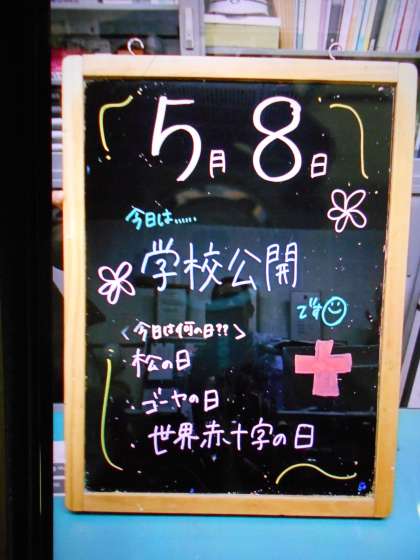 5月8日
今日は……
学校公開
です
〈今日は何の日??〉
・松の日
・ゴーヤの日
・世界赤十字の日